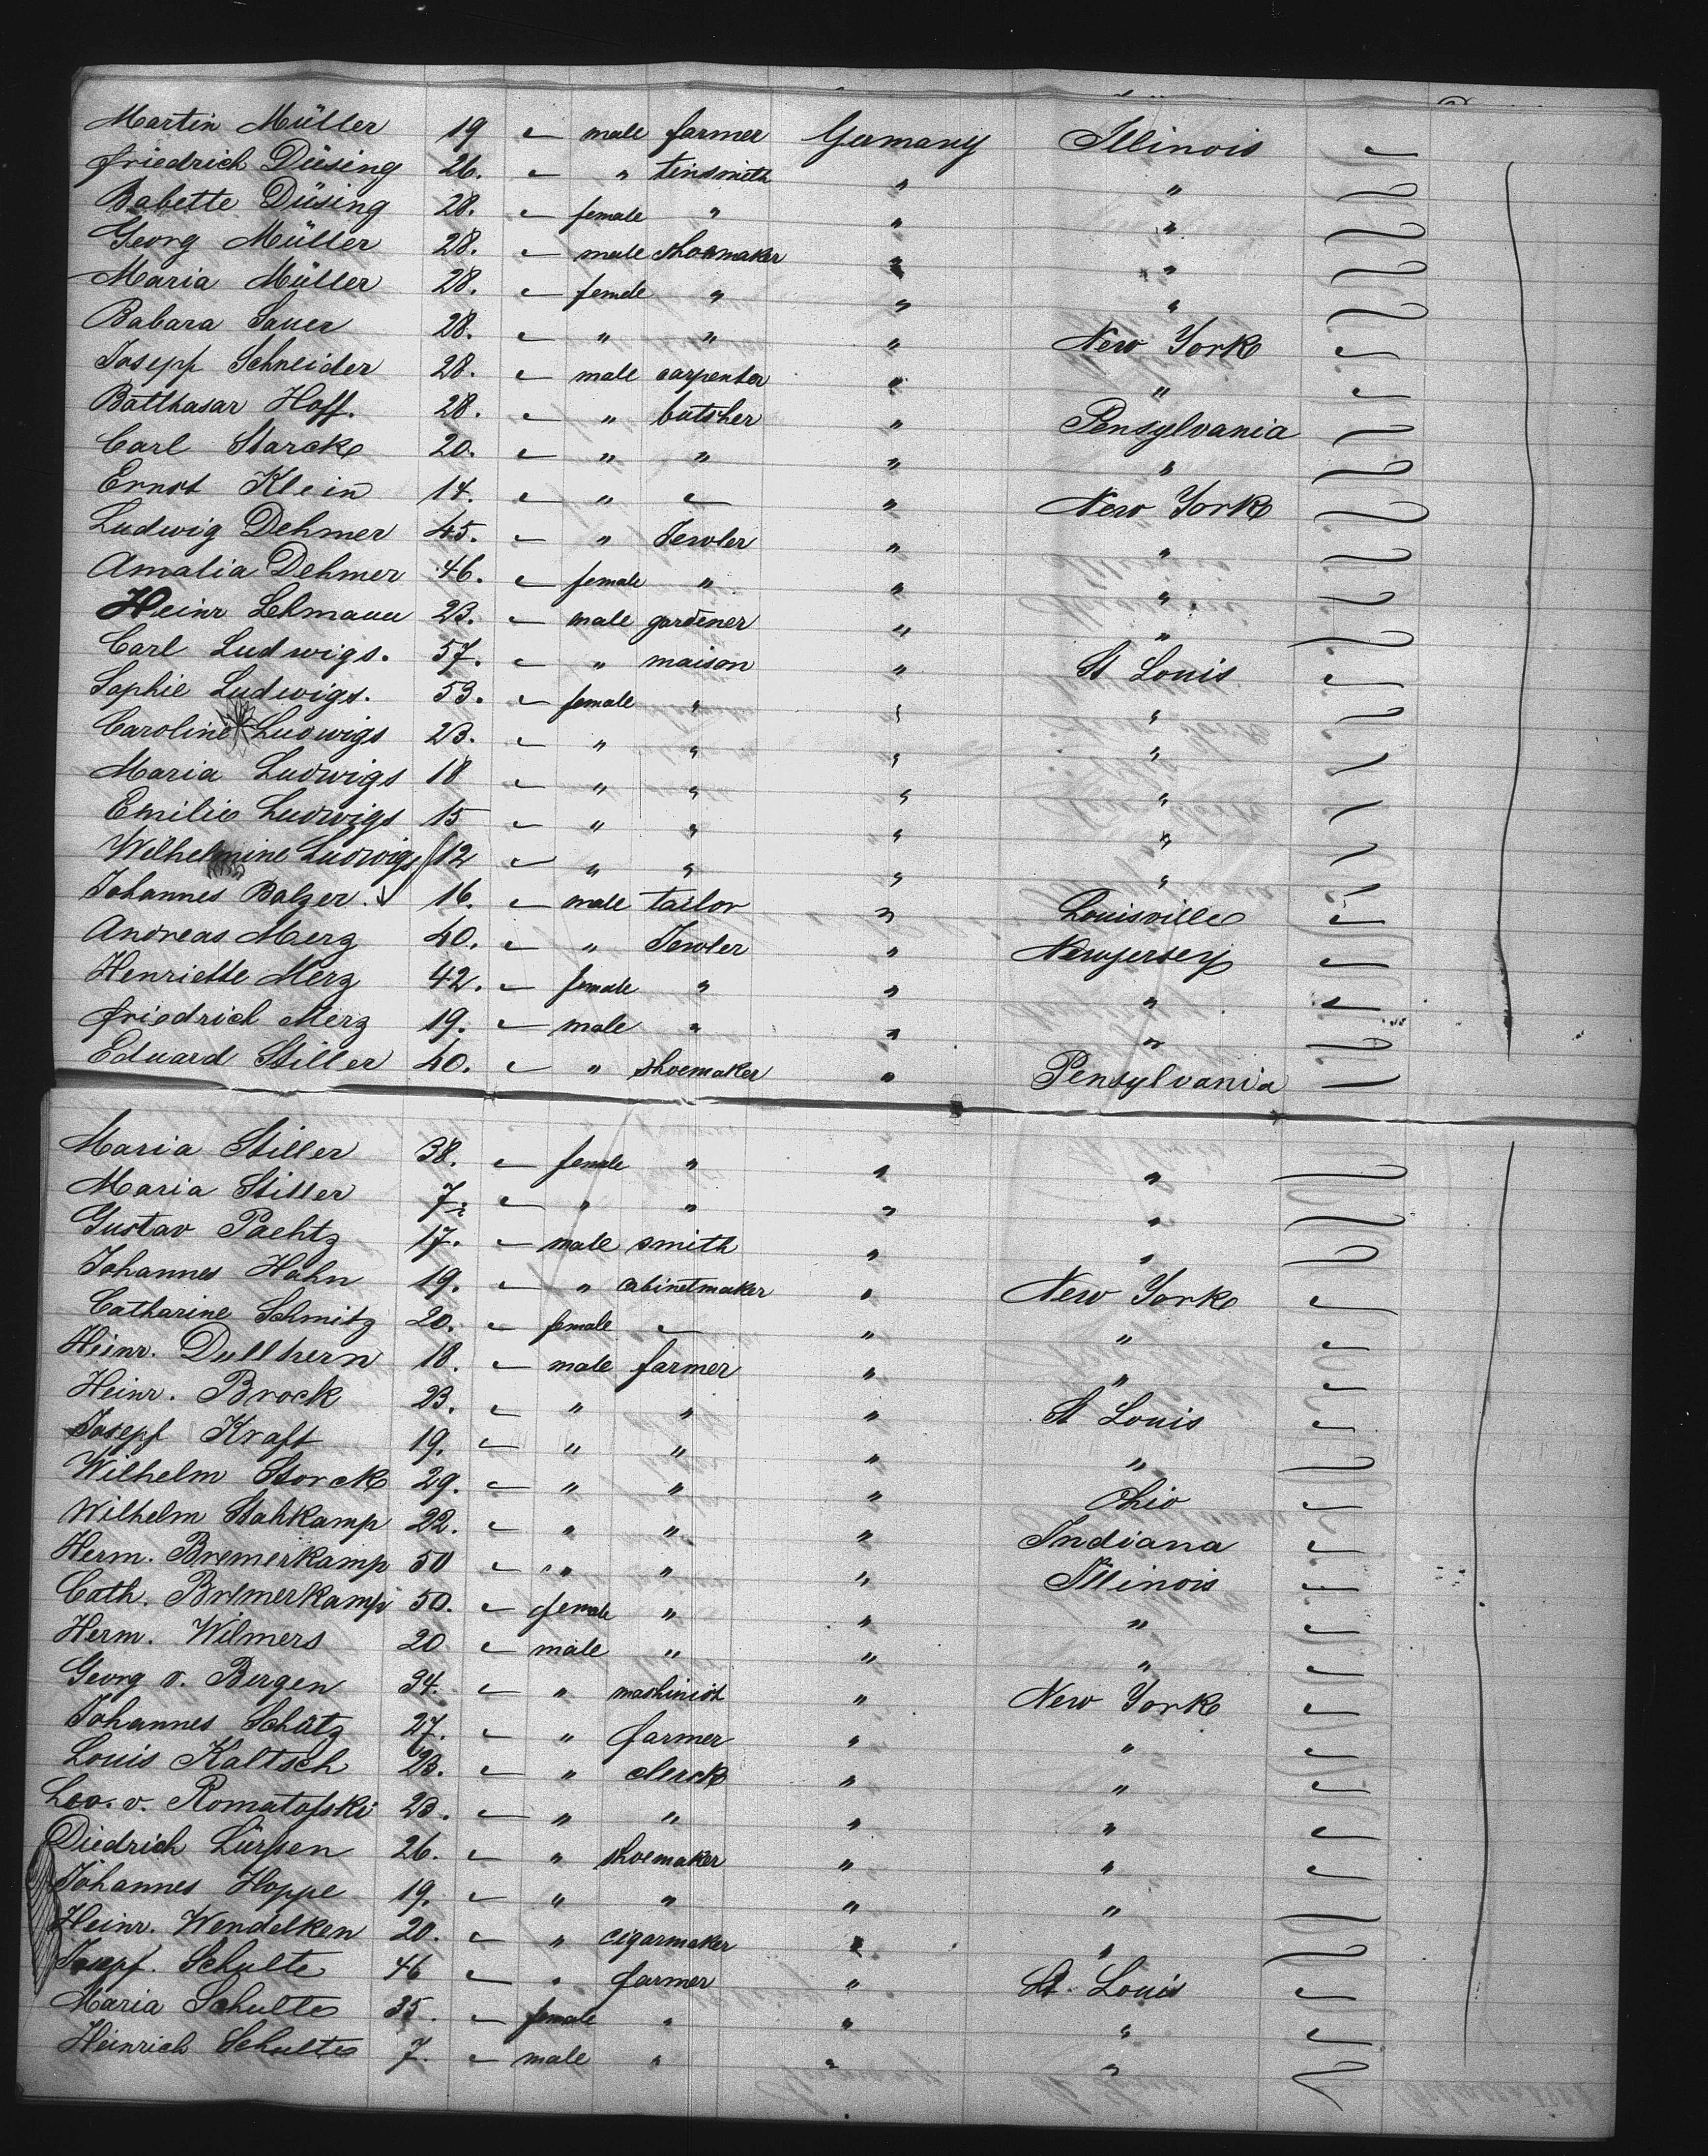 Martin Müller 19 — male farmer Germany Illinois —
Friedrich Düsing 26. — " tinsmith " "
Babette Düsing 28. — female " " "
Georg Müller 28. — male shoemaker " "
Maria Müller 28. — female " " "
Babara Sauer 28. — " " " New York —
Josepf Schneider 28. — male carpenter " " —
Balthasar Hoff. 28. — " butsher " Pensylvania
Carl Starcke 20. — " " " "
Ernst Klein 14. — " — " New York
Ludwig Dehmer 45. — " Jewler " "
Amalia Dehmer 46. — female " " "
Heinr Lehmann 23. — male gardener " "
Carl Ludwigs. 57. — " maison " St Louis —
Sophie Ludwigs. 53. — female " " "
Caroline Ludwigs 23. — " " " "
Maria Ludwigs 18 — " " " "
Emilie Ludwigs 15 — " " " "
Wilhelmine Ludwigs 12 — " " " "
Johannes Balzer. 16. — male tailor " Louisville —
Andreas Merz 40. — " Jewler " Newjersey —
Henriette Merz 42. — female " " " —
Friedrich Merz 19. — male " " "
Eduard Stiller 40. — " shoemaker " Pensylvania
Maria Stiller 38. — female " " "
Maria Stiller 7. — " " " "
Gustav Paehtz 17. — male smith " "
Johannes Hahn 19. — " cabinetmaker " New York —
Catharine Schmitz 20. — female — " " —
Heinr. Dullhern 18. — male farmer " " —
Heinr. Brock 23. — " " " St Louis —
Josepf Kraft 19. — " " " "
Wilhelm Storck 29. — " " " Ohio —
Wilhelm Stahkamp 22. — " " " Indiana —
Herm. Bremerkamp 50 — " " " Illinois —
Cath. Bremerkamp 50. — female " " " —
Herm. Wilmers 20 — male " " " —
Georg v. Bergen 34. — " mashinist " New York —
Johannes Schütz 27. — " farmer " " —
Louis Kaltsch 23. — " clerck " " —
Leo. v. Romatofski 23. — " " " " —
Diedrich Lürssen 26. — " shoemaker " " —
Johannes Hoppe 19. — " " " "
Heinr. Wendelken 20. — " cigarmaker " "
Josepf. Schulte 46 — " farmer " St. Louis —
Maria Schulte 35. — female " " " —
Heinrich Schulte 7. — male " " "